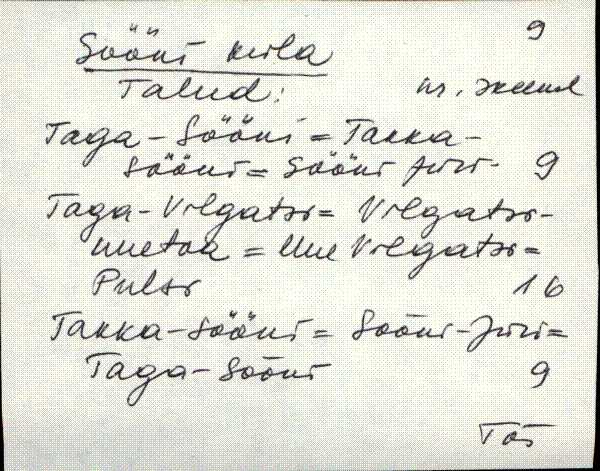 9
Sööni küla
Talud: nr.
Taga-Sööni = Takka-
Sööni = Sööni Jüri- 9
Taga-Vilgatsi = Vilgatsi-
uuetoa = Uue Vilgatsi =
Pulsi 16
Takka-Sööni = Sööni-Jüri =
Taga-Sööni 9
Tõs